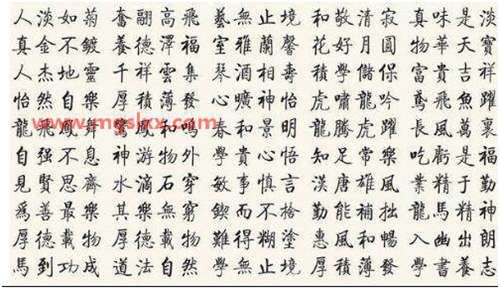 人淡如菊 奮翮高飛 藝無止境 和敬清寂 真味是淡
真金不鍍 養德澤福 室雅蘭馨 花好月圓 物華天寶
人杰地靈 千祥雲集 琴酒相壽 學儲保 富貴吉祥
怡然自樂 厚積薄發 心曠神怡 虎嘯龍吟 鳶飛魚躍
龍 www.mgslxx.com 春和景明 龍騰虎躍 長風萬裏
自强不息 神游物外 學貴心悟 知足常樂 吃虧是福
見賢思齊 水滴石穿 敏事慎言 漢唐雄風 業精于勤
爲善最樂 其樂無窮 鍥而不捨 勤能補拙 龍馬精神
厚德載物 厚德載物 難得糊塗 惠風和暢 入幽出朗
馬到功成 道法自然 學無止境 厚積薄發 學書養志